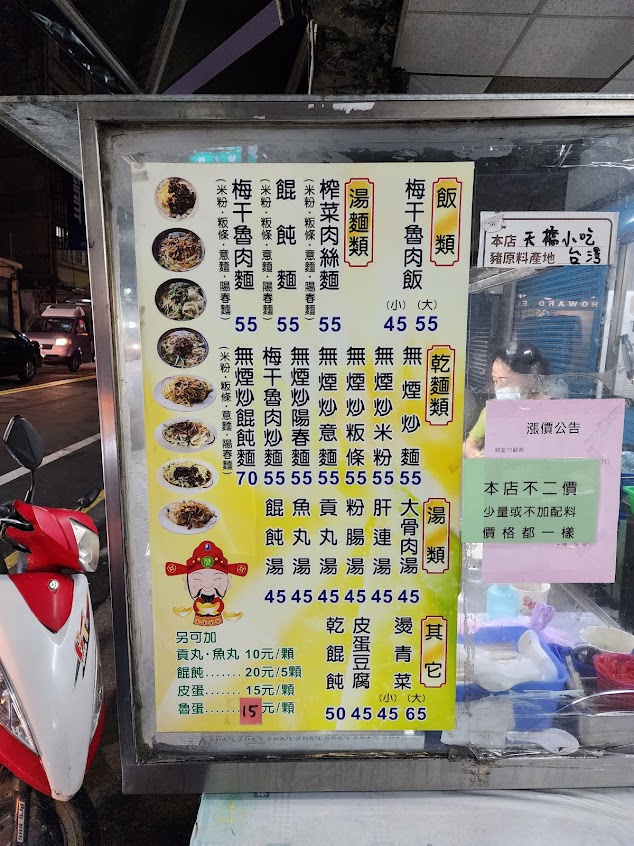 飯類
梅干魯肉飯
(小) (大)
45 55
湯麵類
榨菜肉絲麵
(米粉·粄條·意麵·陽春麵)
55
餛飩麵
(米粉·粄條·意麵·陽春麵)
55
梅干魯肉麵
(米粉·粄條·意麵·陽春麵)
55
乾麵類
無煙炒麵
55
無煙炒米粉
55
無煙炒粄條
55
無煙炒意麵
55
無煙炒陽春麵
55
梅干魯肉炒麵
55
無煙炒餛飩麵
(米粉·粄條·意麵·陽春麵)
70
湯類
大骨肉湯
45
肝連湯
45
粉腸湯
45
貢丸湯
45
魚丸湯
45
餛飩湯
45
其它
燙青菜
(小) (大)
45 65
皮蛋豆腐
45
乾餛飩
50
另可加
貢丸·魚丸 10元/顆
餛飩……20元/5顆
皮蛋……15元/顆
魯蛋……15元/顆
本店 天橋小吃
豬原料產地 台灣
HOWARD
漲價公告
親愛的顧客
本店不二價
少量或不加配料
價格都一樣